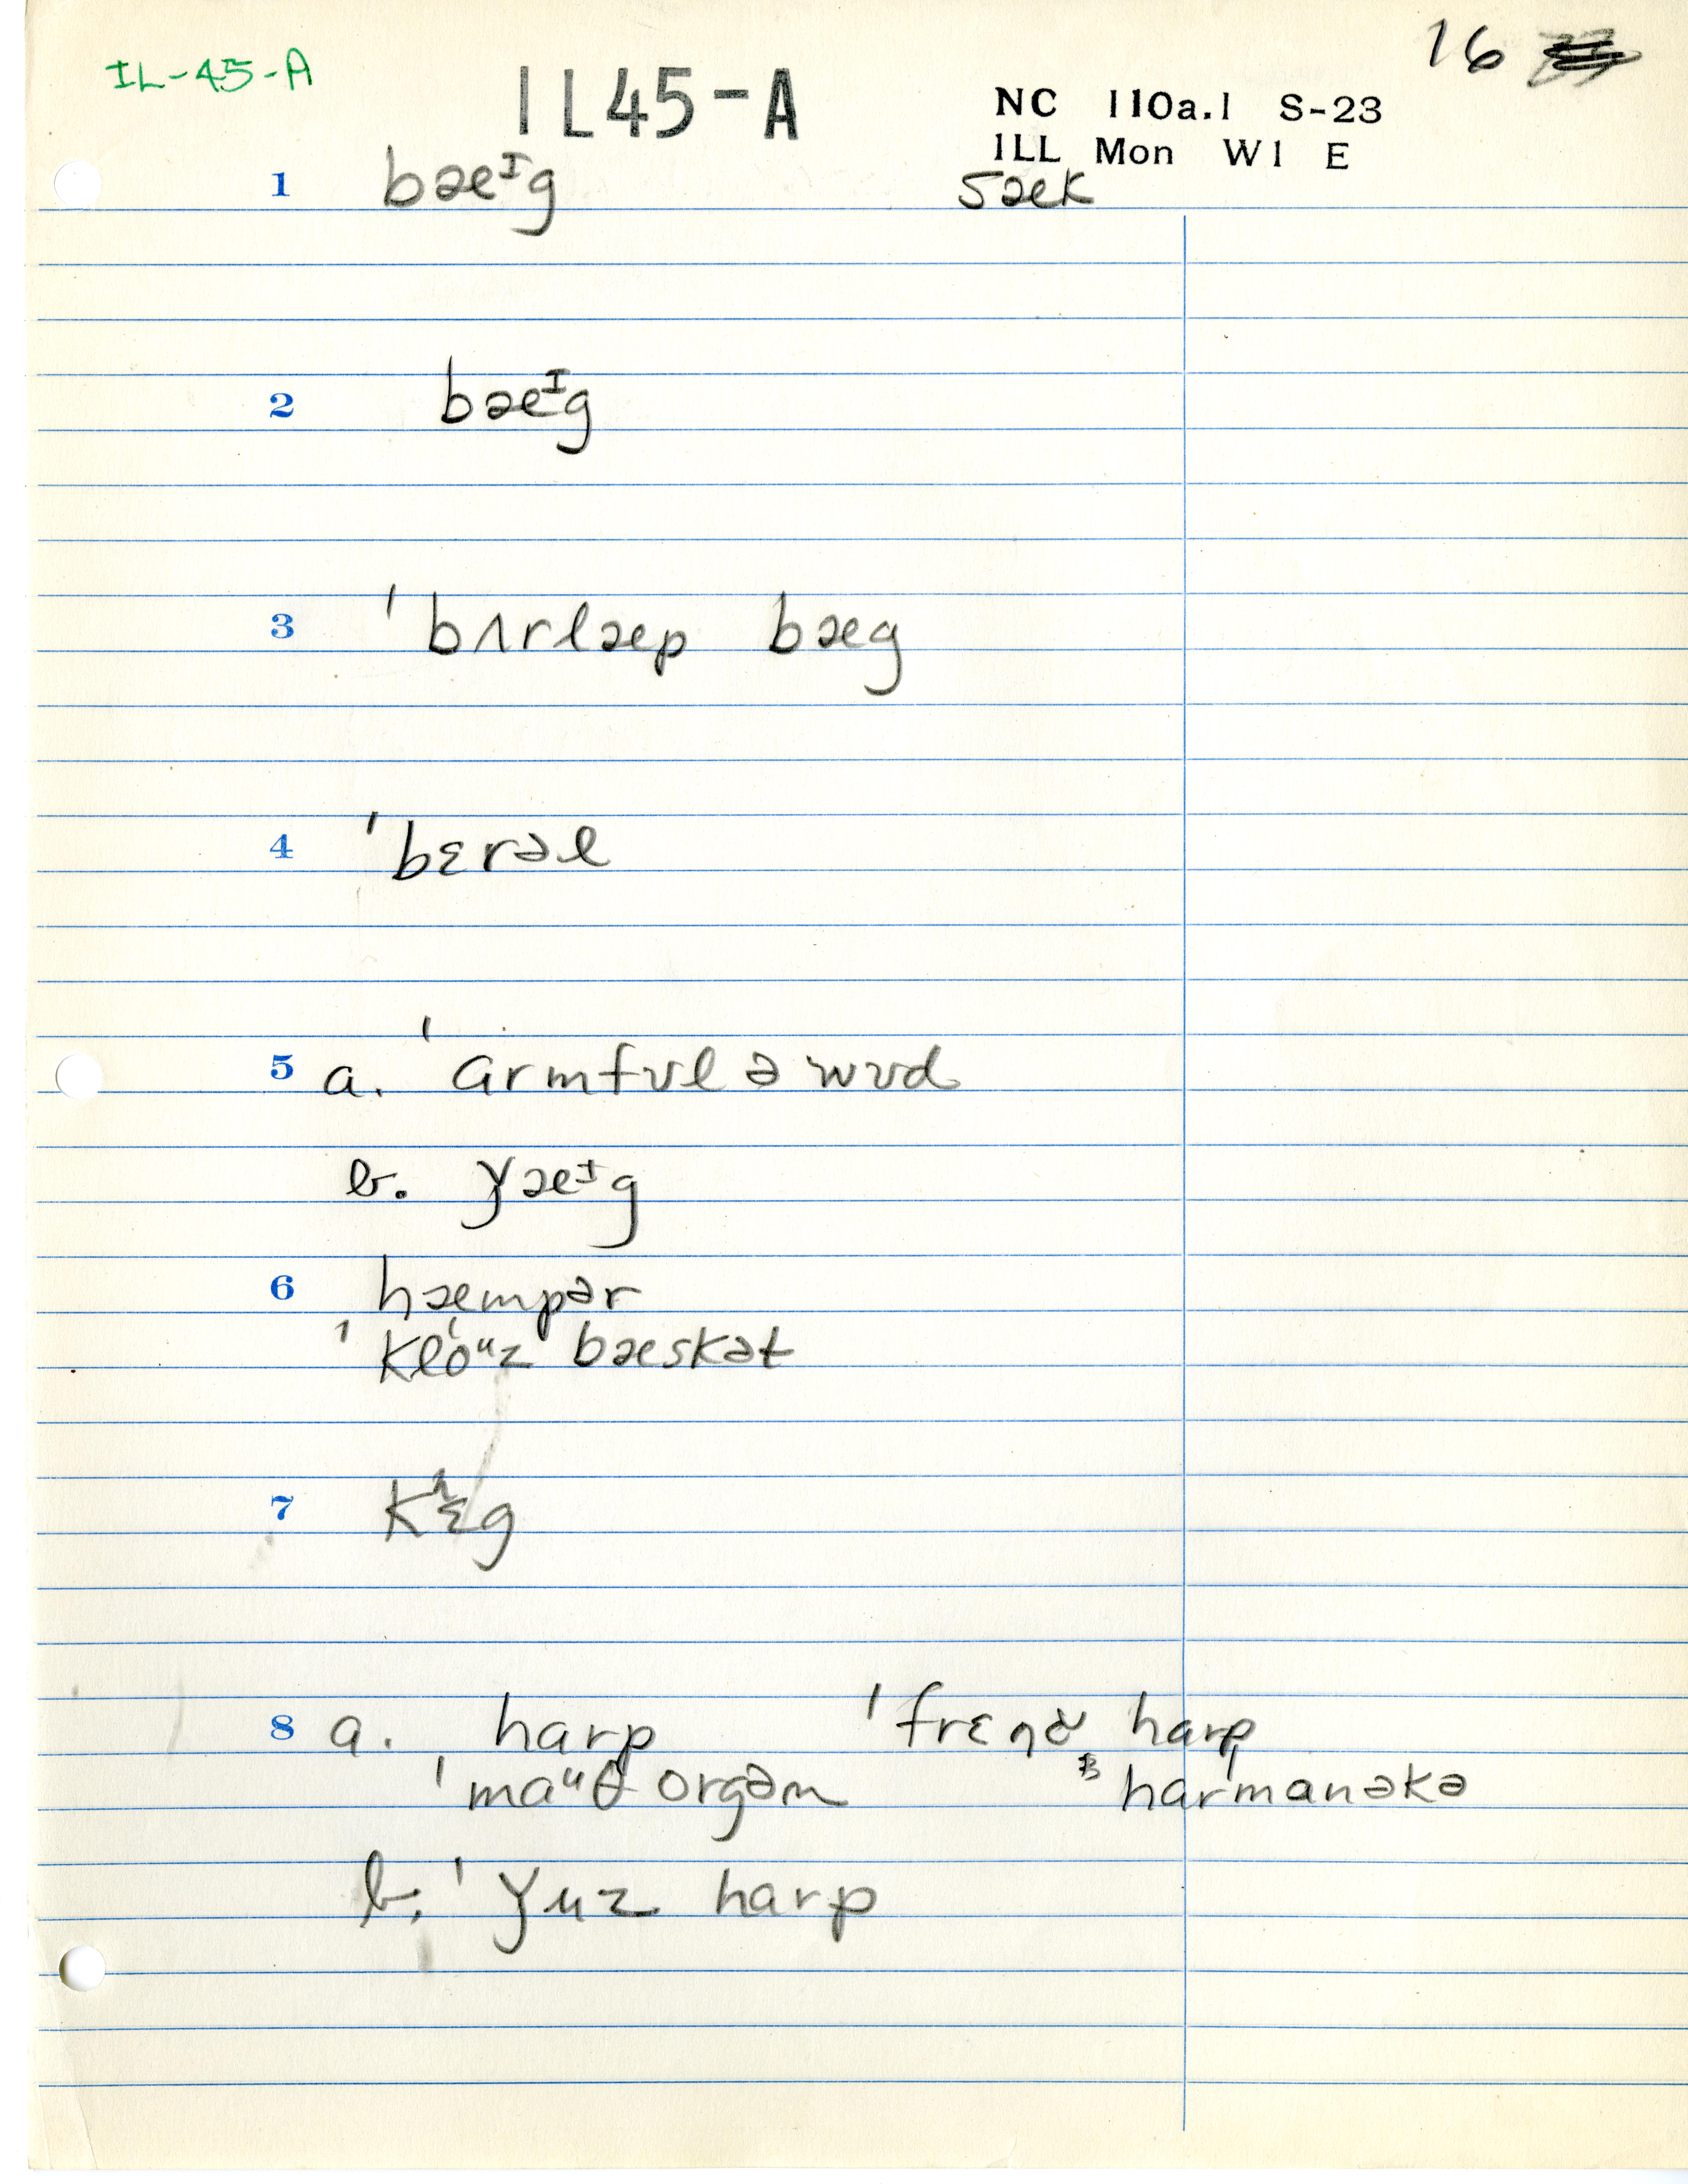 IL-45-A
IL45-A
16
NC 110a.1 S-23
ILL Mon W1 E
1 bæᶦg sæk
2 bæᶦg
3 ˈbʌrlæp bæg
4 ˈbɛrəl
5 a. ˈarmfʊl ə wʊd
b. ɣæᶦg
6 hæmpər
ˈkloᵘz bæskət
7 kʰɛg
8 a. harp ˈfrɛnč harp
ˈmaᵘθ orgən harˈmanəkə
b. ˈɣuz harp